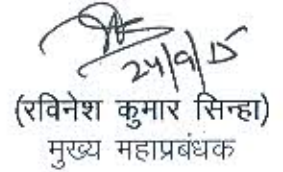 24/9/15
(रविनेश कुमार सिन्हा)
मुख्य महाप्रबंधक